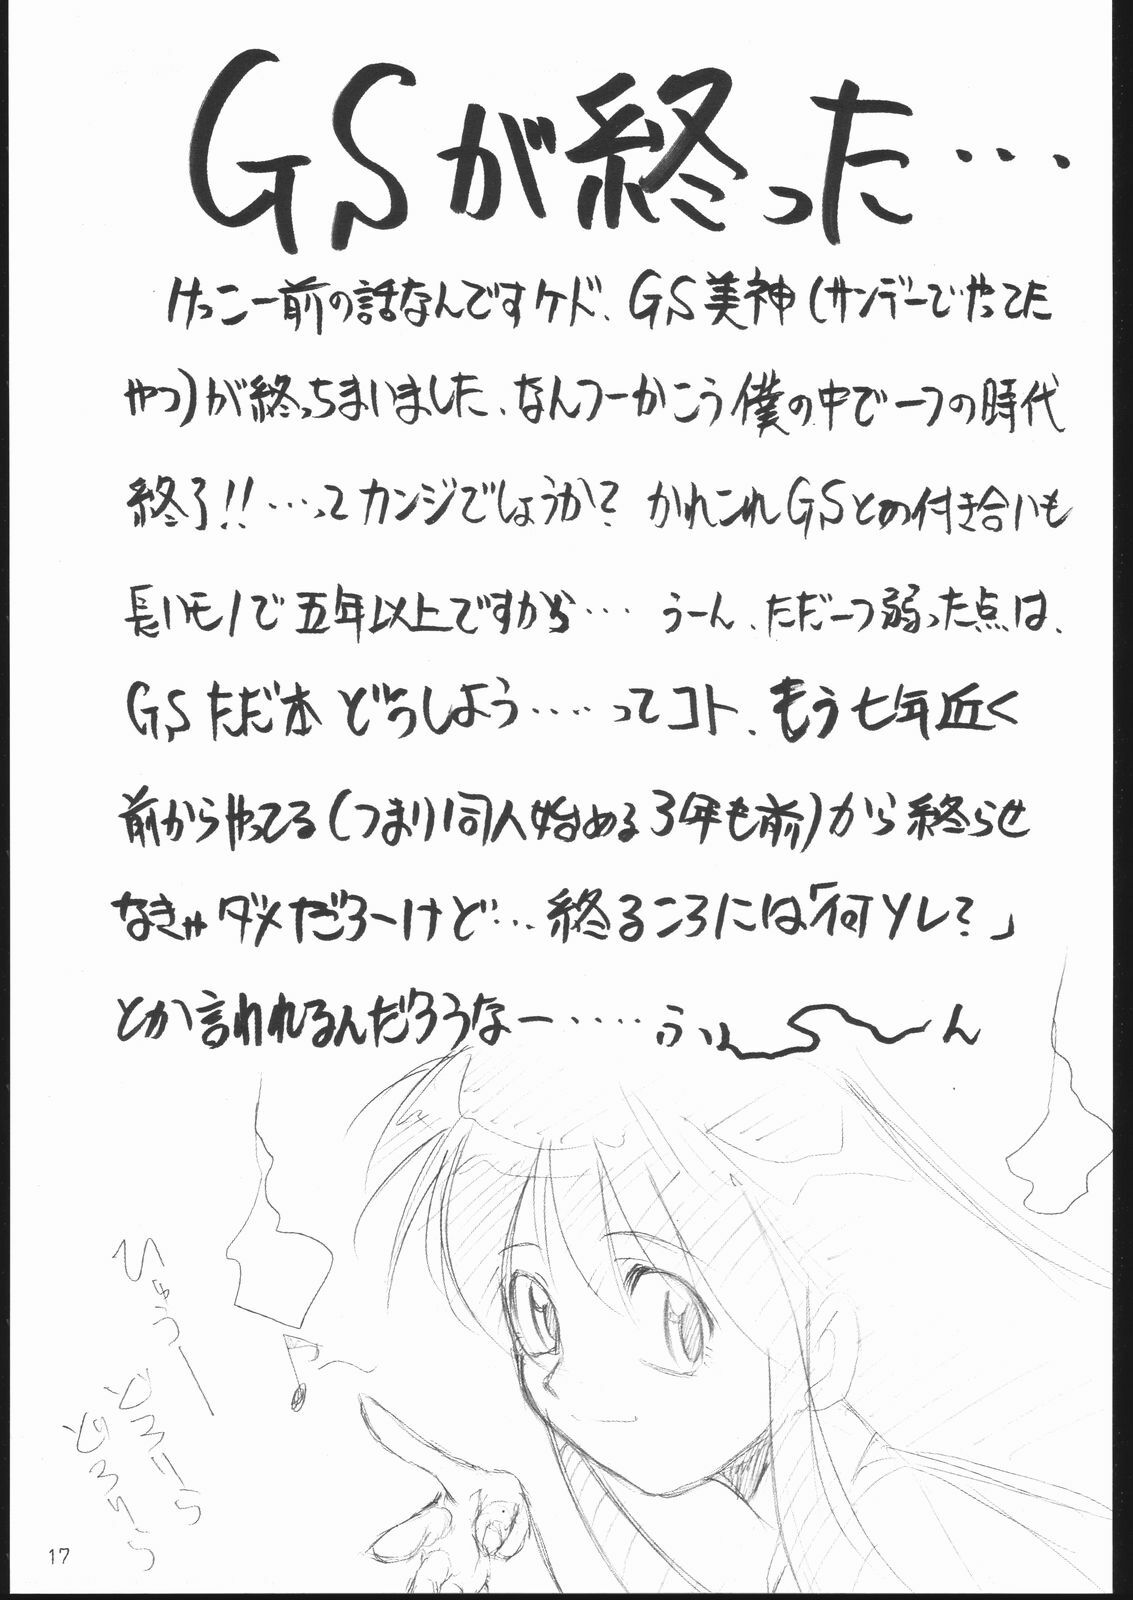 GSが終った…
けっこー前の話なんですケド、GS美神(サンデーでやってた
やつ)が終っちまいました、なんつーかこう僕の中で一つの時代
終了!!…ってカンジでしょうか? かれこれGSとの付き合いも
長いモノで五年以上ですから… うーん、ただ一つ弱った点は、
GSただ本どうしよう…ってコト、もう七年近く
前からやってる(つまり同人始める3年も前)から終らせ
なきゃダメだろーけど…終るころには「何ソレ?」
とか言われるんだろうなー…… ふぃ〜ん
ひゅうー
どろりら
どろりら
17